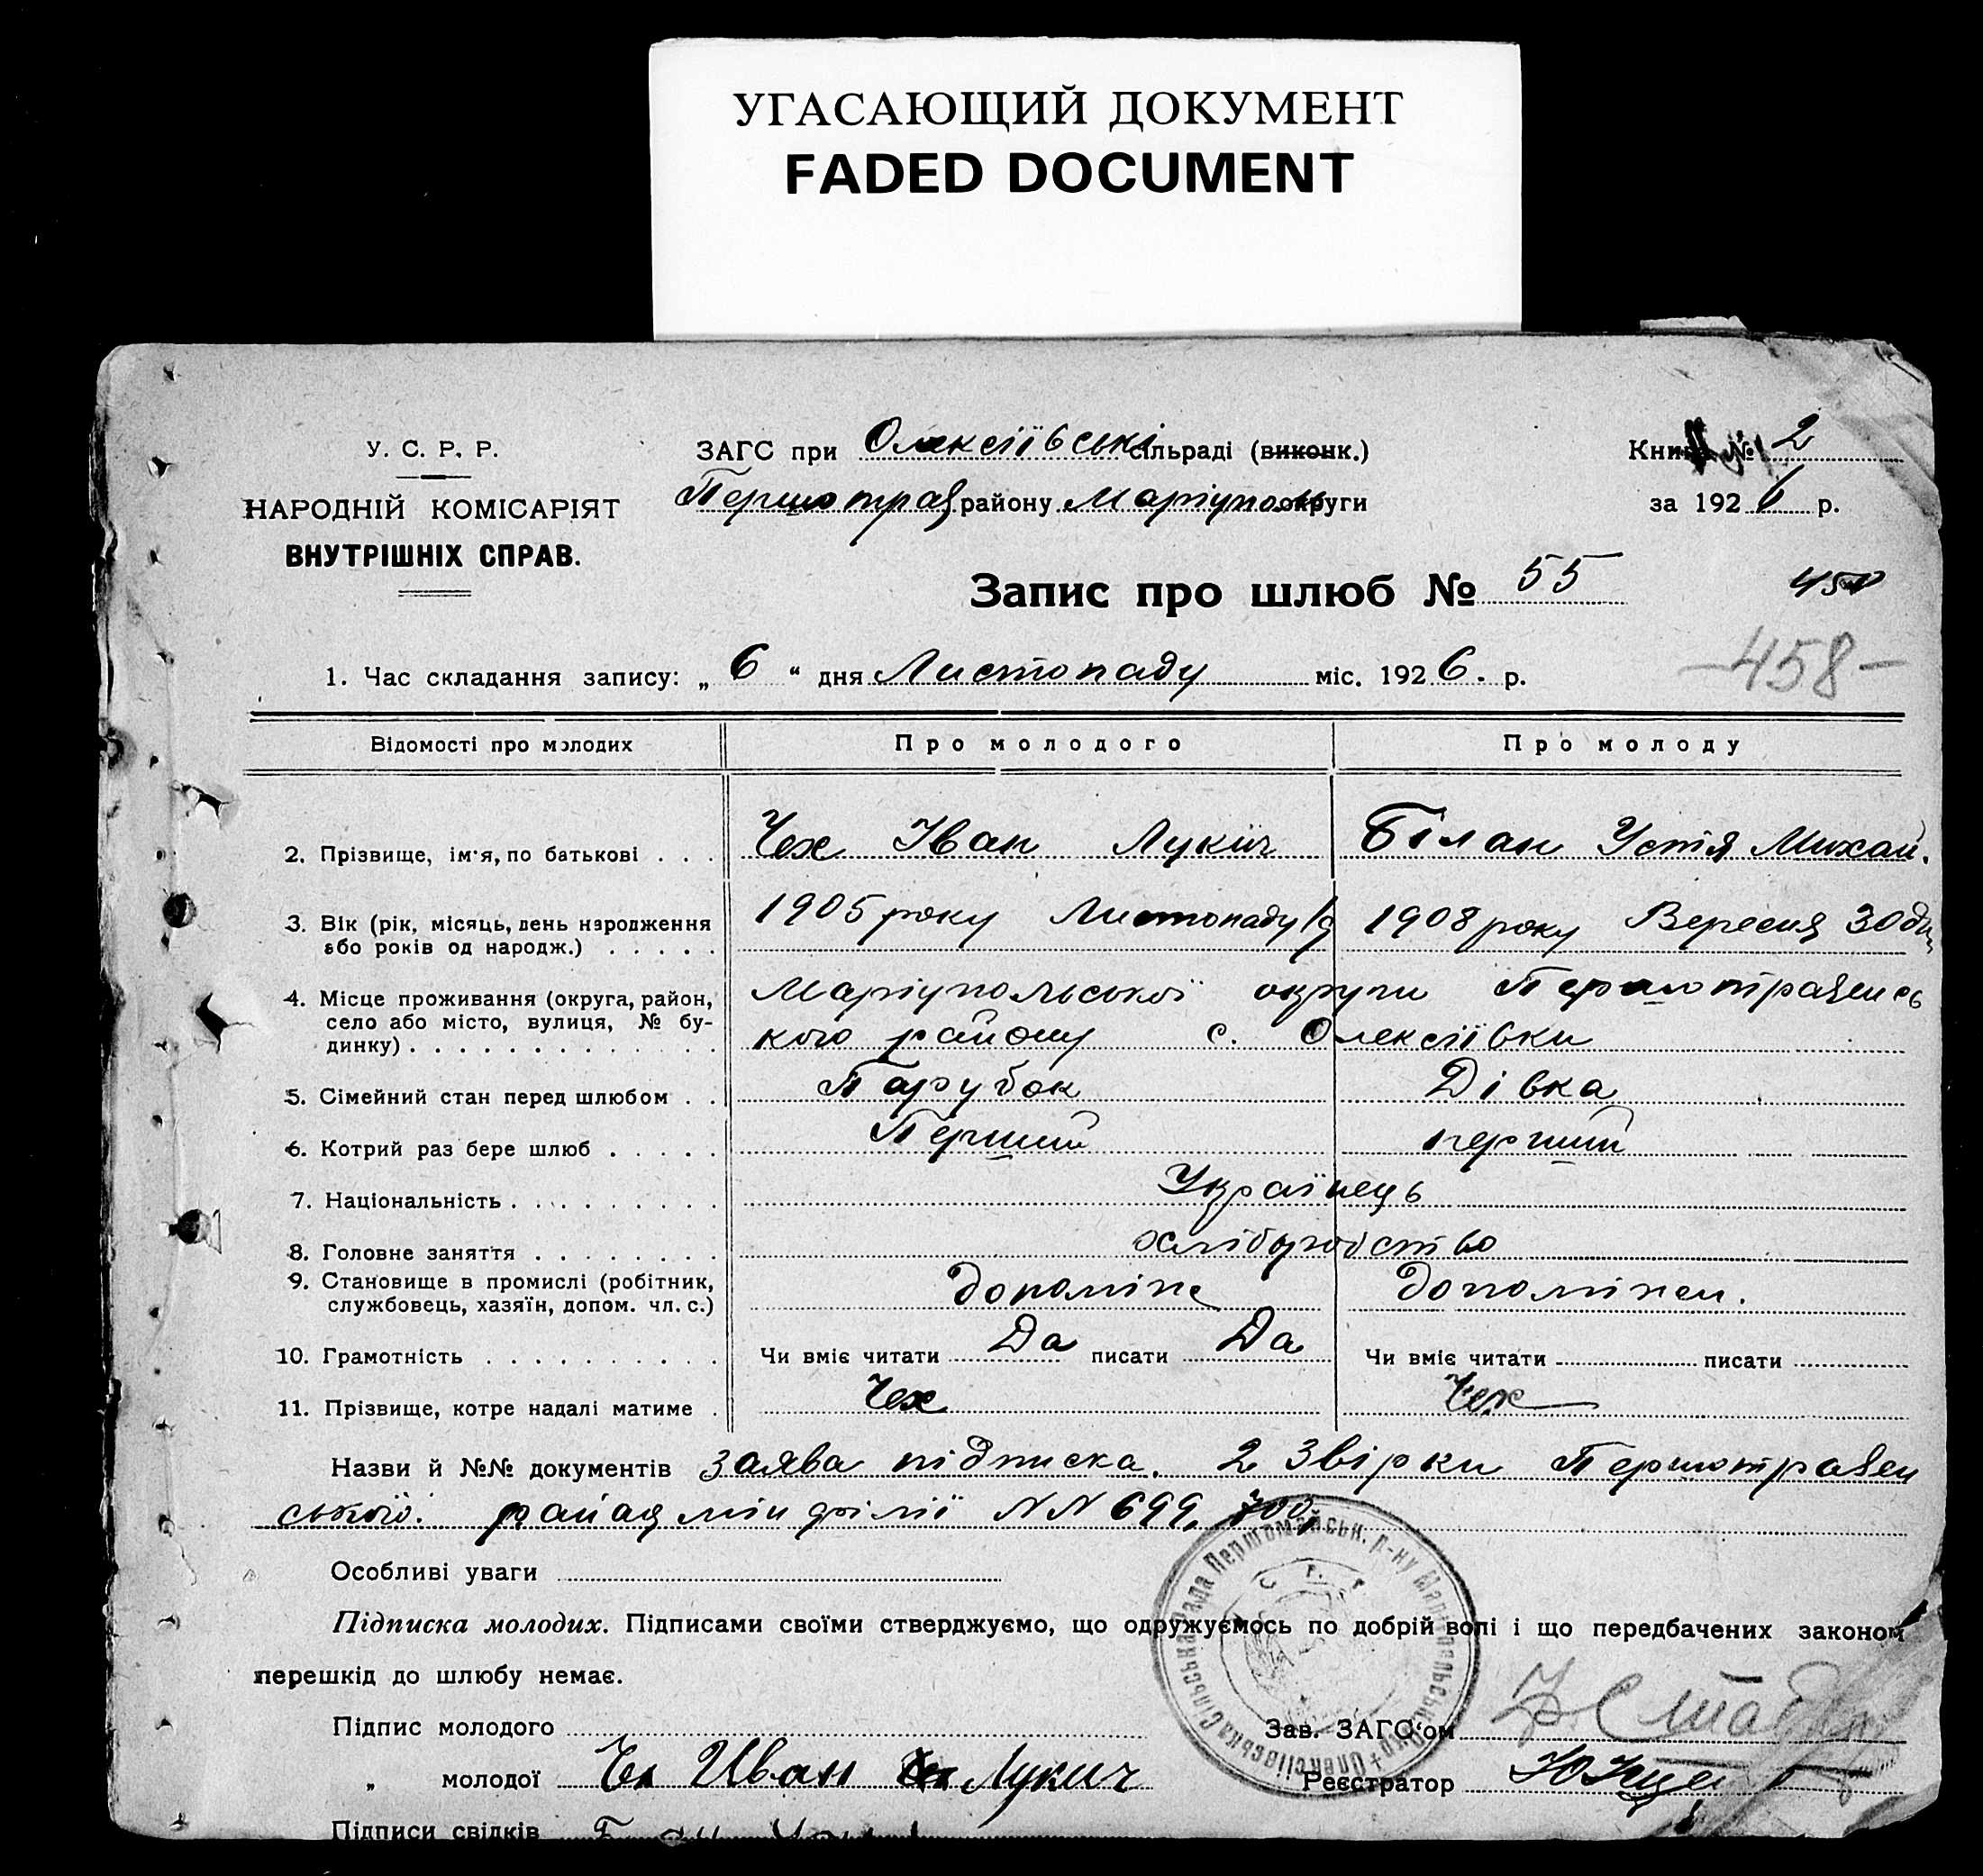 УГАСАЮЩИЙ ДОКУМЕНТ
FADED DOCUMENT
У. С. Р. Р.
НАРОДНІЙ КОМІСАРІЯТ
ВНУТРІШНІХ СПРАВ.
ЗАГС при Олексіївські сільраді (виконк.)
Першотрав району Маріуполь округи
Книга № 2
за 1926 р.
Запис про шлюб № 55
450
-458-
1. Час складання запису: „ 6 “ дня Листопаду міс. 1926. р.
Відомості про молодих Про молодого Про молоду
2. Прізвище, ім'я, по батькові . . . Чех Іван Лукич Білан Устя Михай.
3. Вік (рік, місяць, день народження 1905 року Листопаду 1908 року Вересня 30 дня
або років од народж.) . . . . .
4. Місце проживання (округа, район, Маріупольської округи Першотравенсь
село або місто, вулиця, № бу-
динку) . . . . . . . . . . . . . кого району с. Олексіївки
5. Сімейний стан перед шлюбом . . Парубок Дівка
6. Котрий раз бере шлюб . . . . . Перший перший
7. Національність . . . . . . . . . Українець
8. Головне заняття . . . . . . . . хліборобство
9. Становище в промислі (робітник,
службовець, хазяїн, допом. чл. с.) допоміж допоміжн.
10. Грамотність . . . . . . . . . . Чи вміє читати Да писати Да Чи вміє читати писати
11. Прізвище, котре надалі матиме . Чех Чех
Назви й №№ документів заява підписка. 2 Звірки Першотравен
ської. філії NN 699, 700,
Особливі уваги
Підписка молодих. Підписами своїми стверджуємо, що одружуємось по добрій волі і що передбачених законом
перешкід до шлюбу немає.
Підпис молодого
Зав. ЗАГС'ом
„ молодої Чех Иван Лукич
Реєстратор
Підписи свідків
Олексіївська Сільська Рада Першомайськ. р-ну Маріупольськ. Окр.